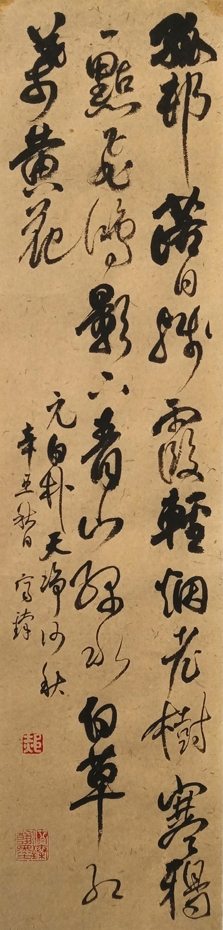 孤邨落日殘霞輕烟老樹寒鴉
一點飛鴻影下青山綠水白草紅
葉黄花
元白朴天净沙秋
辛丑秋日